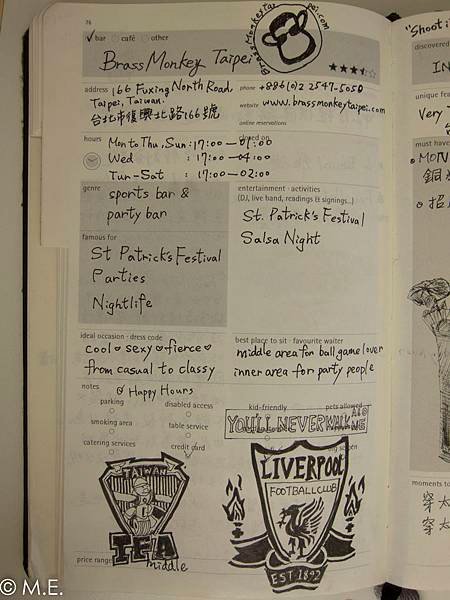 76
✓ bar ○ café ○ other
Brass Monkey Taipei
Brassmonkeytaipei.com
address 166 Fuxing North Road,
Taipei, Taiwan.
台北市復興北路166號
phone +886(0)2 2547-5050
website www.brassmonkeytaipei.com
online reservations
hours Mon to Thu, Sun: 17:00—01:00
Wed : 17:00—04:00
closed on
genre
sports bar &
party bar
entertainment · activities
(DJ, live band, readings & signings...)
St. Patrick's Festival
Salsa Night
famous for
St Patrick's Festival
Parties
Nightlife
ideal occasion · dress code
cool sexy fierce
from casual to classy
best place to sit · favourite waiter
middle area for ball game lover
inner area for party people
notes
Happy Hours
parking
disabled access
kid-friendly
pets allowed
smoking area
table service
catering services
credit card
YOU'LL NEVER WALK
TAIWAN
middle
price range
LIVERPOOL
FOOTBALL CLUB
EST·1892
"Shoot i
discovered
IN
unique fra
Very
must have
MON
moments to
© M.E.